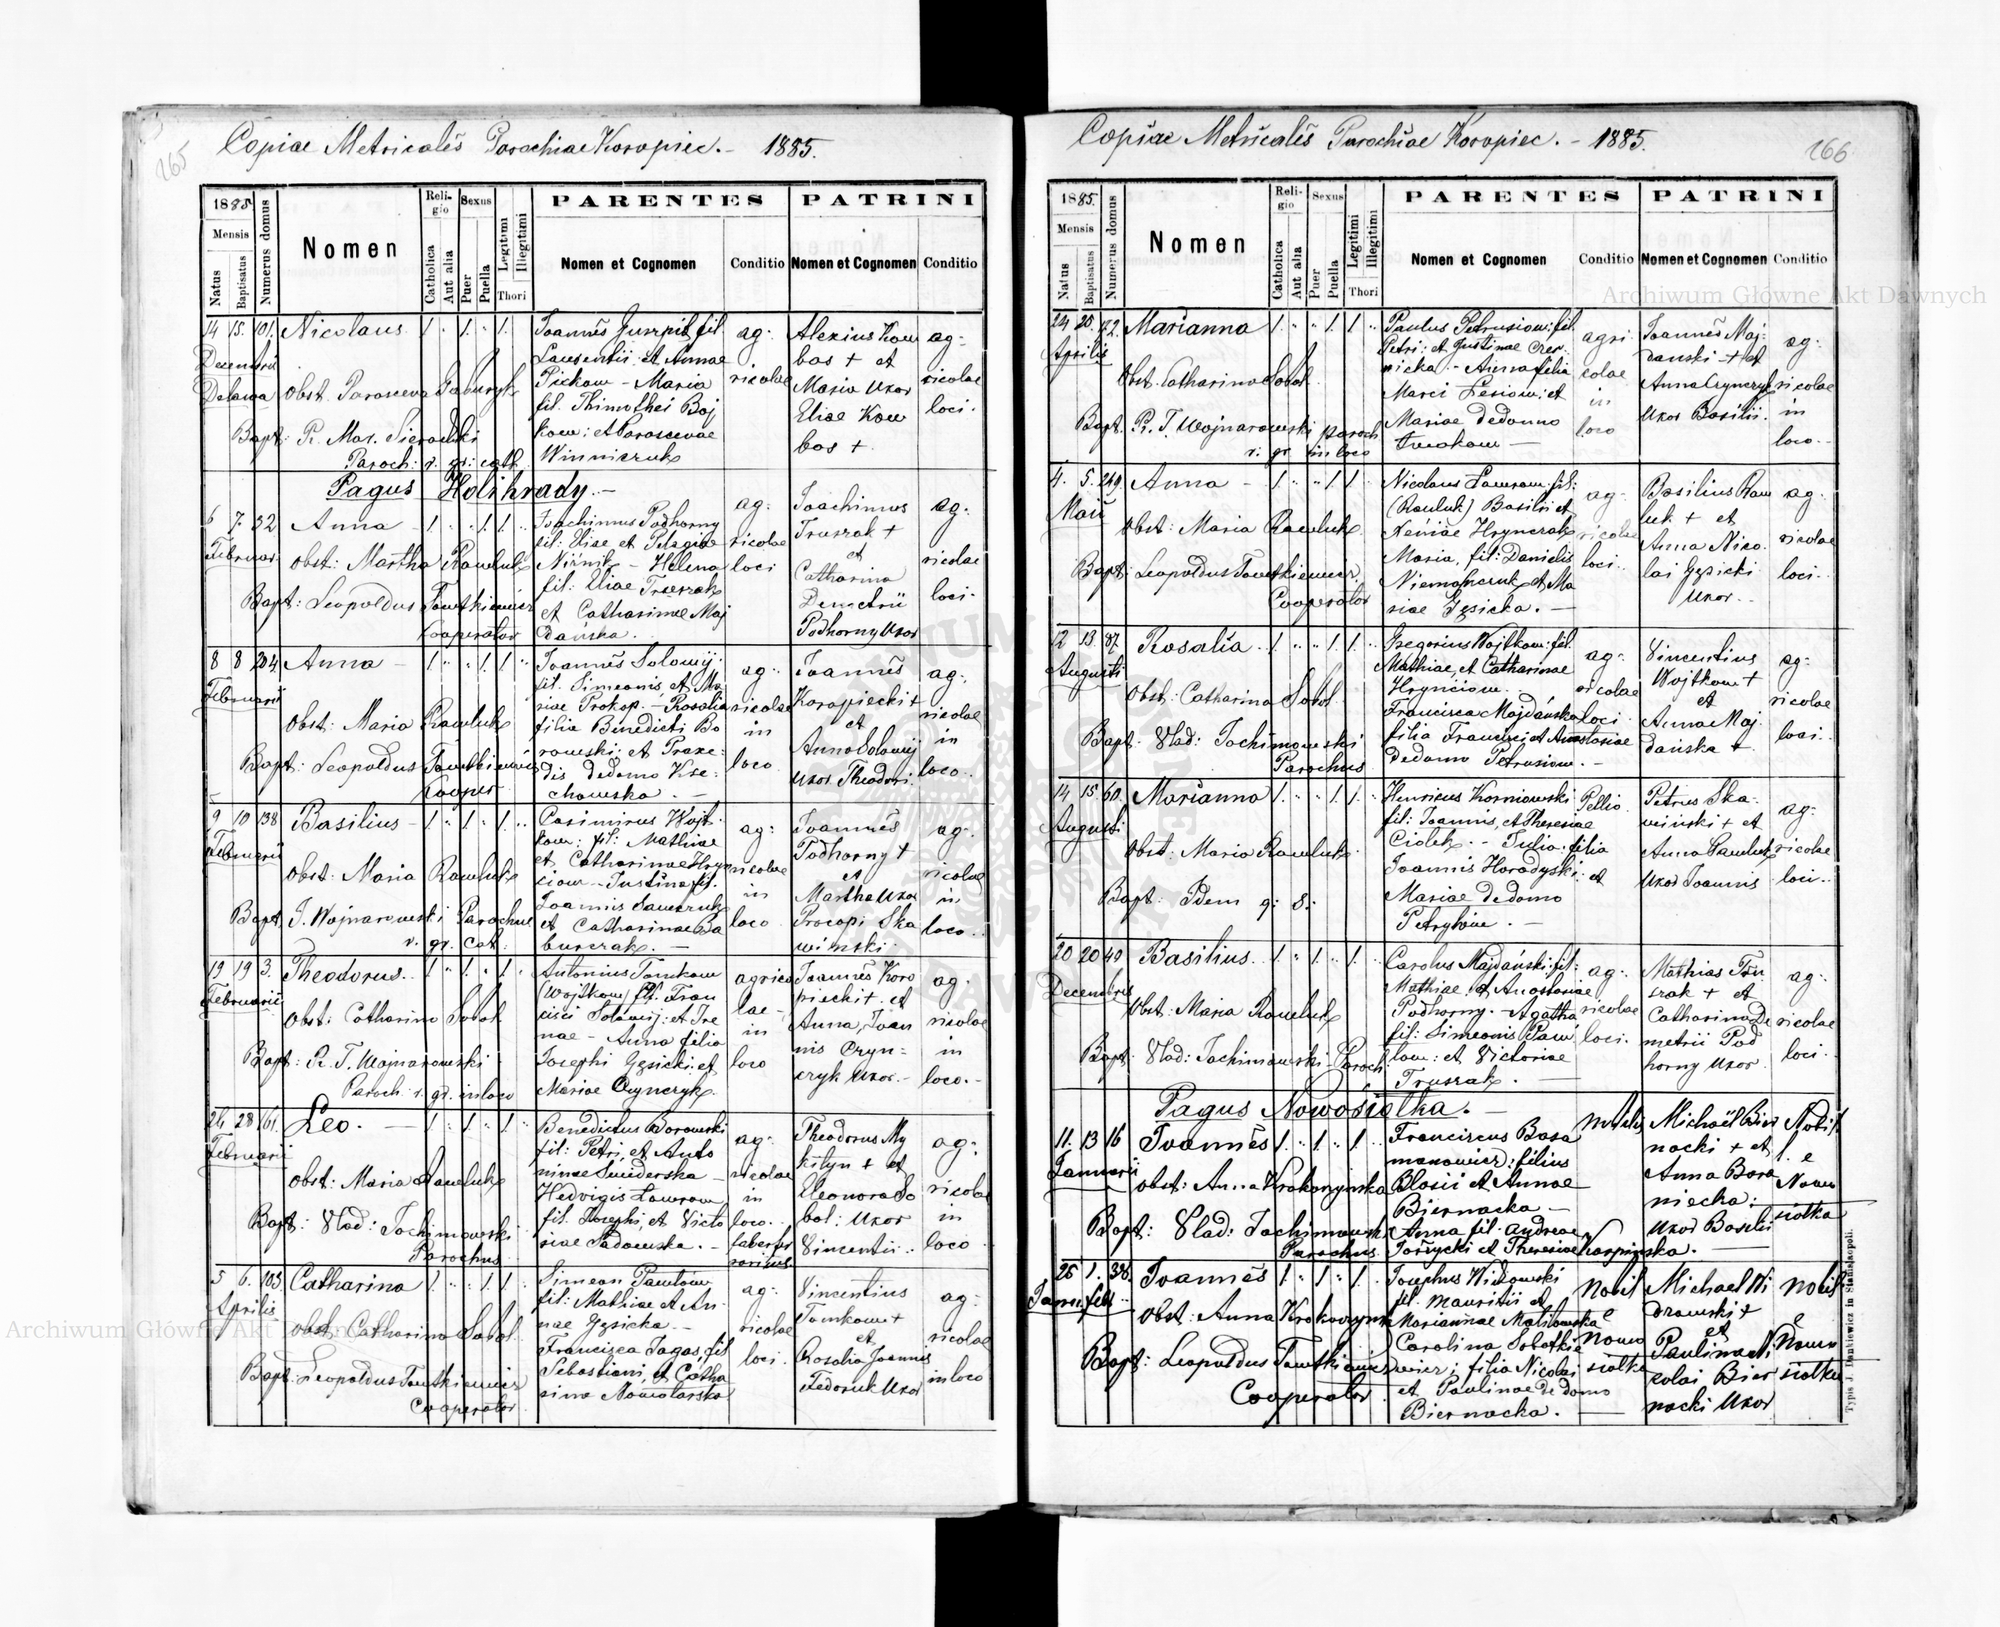 265
Copiae Metricales Parochiae Koropiec. - 1885.
1885
Mensis
Natus
Baptisatus
Numerus domus
Nomen
Religio
Catholica
Aut alia
Sexus
Puer
Puella
Legitimi
Illegitimi
Thori
PARENTES
Nomen et Cognomen
Conditio
PATRINI
Nomen et Cognomen
Conditio
14 15. 101. Nicolaus 1 " 1. " 1.
Decembris
Delawa
Obst. Parasceva
Bapt: R. Mar. Sieradzki
Paroch: r. gr: cath.
Laurentii et Annae
Pickow - Maria
fil. Thimothei Boj
kow: et Parascevae
Winniczuk
ag:
ricolae
Alexius Kow
bas + et
Maria uxor
Eliae Kow
bas +
ag:
ricolae
loci.
Pagus Holihrady. -
6 7. 32 Anna - 1 " " 1 1.
Februar.
Obst: Martha Pawluk
Bapt: Leopoldus Tomtkiewicz
Cooperator
Joachimus Podhorny
fil. Eliae et Pelagiae
Niżnik - Helena
fil: Eliae Truszak
et Catharinae Maj
dańska.
ag:
ricolae
loci
Joachimus
Truszak +
et
Catharina
Demetrii
Podhorny uxor
ag:
ricolae
loci.
8 8 204 Anna - 1 " " 1. 1
Februarii
Obst: Maria Pawluk
Bapt: Leopoldus
Cooper
Joannes Solowij:
fil. Simeonis, et Ma
riae Prokop. - Rosalia
filia Benedicti Bo
rowski: et Praxe:
dis dedomo Krze:
chowska. -
ag:
ricolae
in
loco
Joannes
Koropiecki +
et
Anna Solowij
uxor Theodori.
ag:
ricolae
in
loco.
9 10 138 Basilius - 1 " 1 " 1.
Februarii
Obst: Maria Pawluk
Bapt. J. Wojnarowski Parochus
r. gr. cat.
Casimirus Wojt
kow: fil: Mathiae
et Catharinae Hryn
ciow - Justina fil.
Joannis Sawczuk
et Catharinae Ba
burczak. -
ag:
ricolae
in
loco
Joannes
Podhorny +
et
Martha uxor
Procopi Ska
wiński.
ag:
ricolae
in
loco.
19 19 3. Theodorus. 1 " 1. " 1.
Februarii
Obst: Catharina Sobol
Bapt: R. J. Wojnarowski
Paroch. r. gr. in loco
Antonius Tomkow
(Wojtkow) fil. Fran
cisci Solowij: et Ire
nae - Anna filia
Josephi Gęsicki: et
Mariae Crynczyk.
agrico
lae
in
loco
Joannes Koro
piecki +. et
Anna, Joan
nis Cryn=
czyk uxor. -
ag:
ricolae
in
loco. -
26 28 161. Leo. - 1 " 1. " 1.
Februarii
Obst: Maria Pawluk
Bapt: Vlad: Jachimowski
Parochus
Benedictus Borowski
fil: Petri, et Anto
ninae Swiderska -
Hedvigis Lawrow
fil. Josephi, et Victo
riae Sadowska. -
ag:
ricolae
in
loco.
Theodorus My
kityn + et
Eleonora So
bol: uxor
Vincentii.
ag:
ricolae
in
loco
5 6. 103. Catharina 1 " " 1. 1
Aprilis
Obst. Catharina Sobol
Bapt: Leopoldus Tomtkiewicz
Cooperator
Simeon Pawlow
fil: Mathiae et An-
nae Gęsicka. -
Francisca Jagas, fil
Sebastiani, et Catha
rina Nowotarska
ag:
ricolae
loci
Vincentius
Tomkow +
et
Rosalia Joannis
Fedoruk uxor
ag:
ricolae
in loco
266
Copiae Metricales Parochiae Koropiec. - 1885.
1885.
Mensis
Natus
Baptisatus
Numerus domus
Nomen
Religio
Catholica
Aut alia
Sexus
Puer
Puella
Legitimi
Illegitimi
Thori
PARENTES
Nomen et Cognomen
Conditio
PATRINI
Nomen et Cognomen
Conditio
Marianna 1. " " 1. 1
Aprilis
Obst. Catharina Sobol
Bapt. R. J. Wojnarowski paroch
r. gr in loco
Paulus Petrusiow: fil.
Petri: et Justinae Czer
nicka. - Anna filia
Marci Lesiow: et
Mariae dedomo
agri
colae
in
loco
Joannes Maj-
danski + et
Anna Crynczyk
uxor Basilii.
ag:
ricolae
in
loco.
4. 5. 249. Anna - 1 " " 1. 1
Maii
Obst: Maria Pawluk
Bapt: Leopoldus Tomtkiewicz
Cooperator
Nicolaus Lawrow: fil:
(Pawluk) Basilii et
Xeniae Hrynczak
Maria, fil: Danielis
et Ma
riae Gęsicka. -
ag:
ricolae
loci.
Basilius Paw
luk + et
Anna Nico
lai Gęsicki
uxor.
ag:
ricolae
loci.
12 13 87. Rosalia. 1 " " 1. 1.
Augusti
Obst. Catharina Sobol
Bapt. Vlad: Jachimowski
Parochus
Gregorius Wojtkow: fil.
Mathiae, et Catharinae
Hrynciow.
Francisca Majdańska
filia Francisci et Anastasiae
dedomo Petrusiow. -
ag:
ricolae
loci
Vincentius
Wojtkow +
et
Anna Maj
dańska +
ag:
ricolae
loci.
14 15. 60. Marianna 1. " " 1. 1.
Augusti
Obst: Maria Pawluk
Bapt. Idem q: s:
Henricus Korniowski
fil: Joannis, et Theresiae
Ciolek. - Julia filia
Joannis Horodyski: et
Mariae dedomo
Pellio
Petrus Ska-
wiński + et
Anna Pawluk
uxor Joannis
ag:
ricolae
loci.
20 20 40 Basilius. 1 " 1. " 1.
Decembris
Obst. Maria Pawluk
Bapt. Vlad: Jachimowski Paroch
Carolus Majdański: fil:
Mathiae: et Anastasiae
Podhorny. - Agatha
fil: Simeonis Paw
low: et Victoriae
Truszak. -
ag:
ricolae
loci.
Mathias Tru
szak + et
Catharina De
metrii Pod
horny uxor
ag:
ricolae
loci.
Pagus Nowosiołka. -
11. 13 16 Joannes 1. " 1. " 1.
Januarii
Obst: Anna
Bapt: Vlad: Jachimowski
Parochus
Franciscus Bara
manowicz: filius
Blasii et Annae
Biernacka -
Anna fil. Andreae
et Theresiae Karpinska. -
Nobiles
Michaël Bier
nacki + et
Anna Bara
niecka:
uxor Basilii
Nobil
e
Nowo
siołka
26 1. 38. Joannes 1. " 1 " 1.
Janu. febr.
Obst: Anna
Bapt: Leopoldus Tomtkiewicz
Cooperator
Josephus
fil. Mauritii et
Mariannae
Carolina Sobotkie
wicz; filia Nicolai
et Paulinae de domo
Biernacka. -
Nobil
e
Nowo
siołka
Michael Wi
drowski +
et
Paulina Ni
colai Bier
nacki uxor
Nobil
e
Nowo
siołka
Typis J. Dankiewicz in Stanislaopoli.
Archiwum Główne Akt Dawnych
Archiwum Główne Akt Dawnych